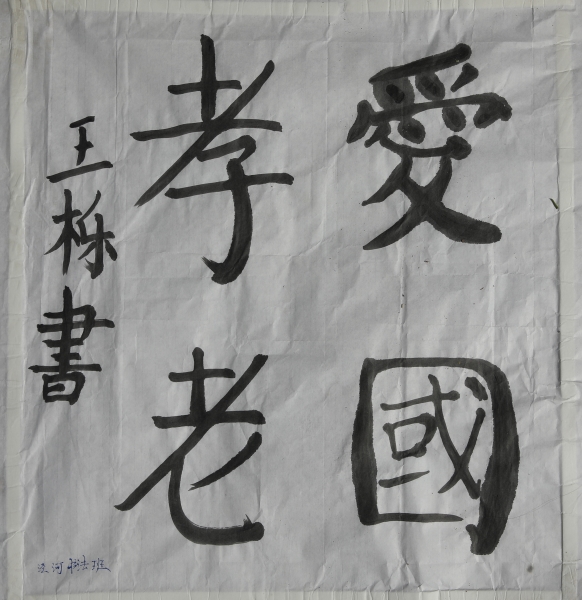 愛國
孝老
王栎書
书法班